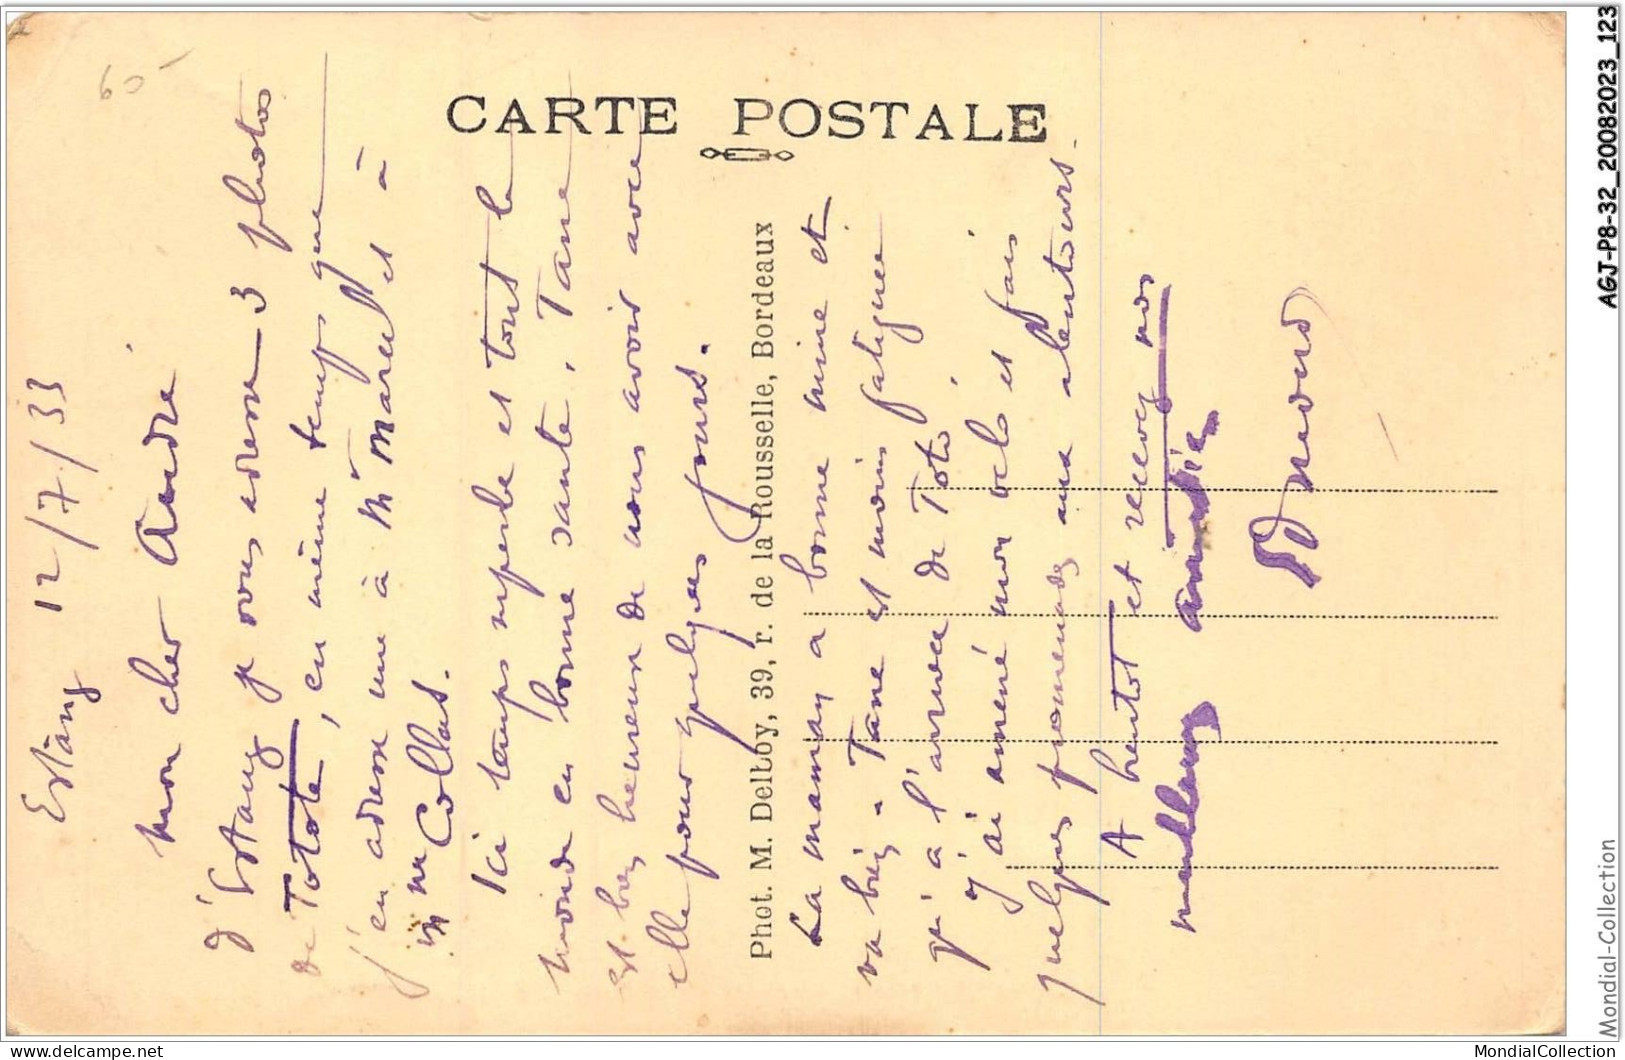 60
CARTE POSTALE
Estang 12/7/33
Mon cher André
D'Estang je vous adresse 3 photos
de Totote, en même temps que
j'en adresse une à Mr Marcel et à
Mme Collas.
Ici temps superbe et tout le
monde en bonne santé. Tane
est bien heureuse de nous avoir avec
elle pour quelques jours.
Phot. M. Delboy, 39, r. de la Rousselle, Bordeaux
La maman a bonne mine et
va bien. Tane est moins fatiguée
qu'à l'arrivée de Toto.
J'ai amené mon vélo et fais
quelques promenades aux alentours.
A bientôt et recevez nos
meilleures amitiés
AGJ-P8-32_20082023_123
Mondial-Collection
MondialCollection
https://www.delcampe.net